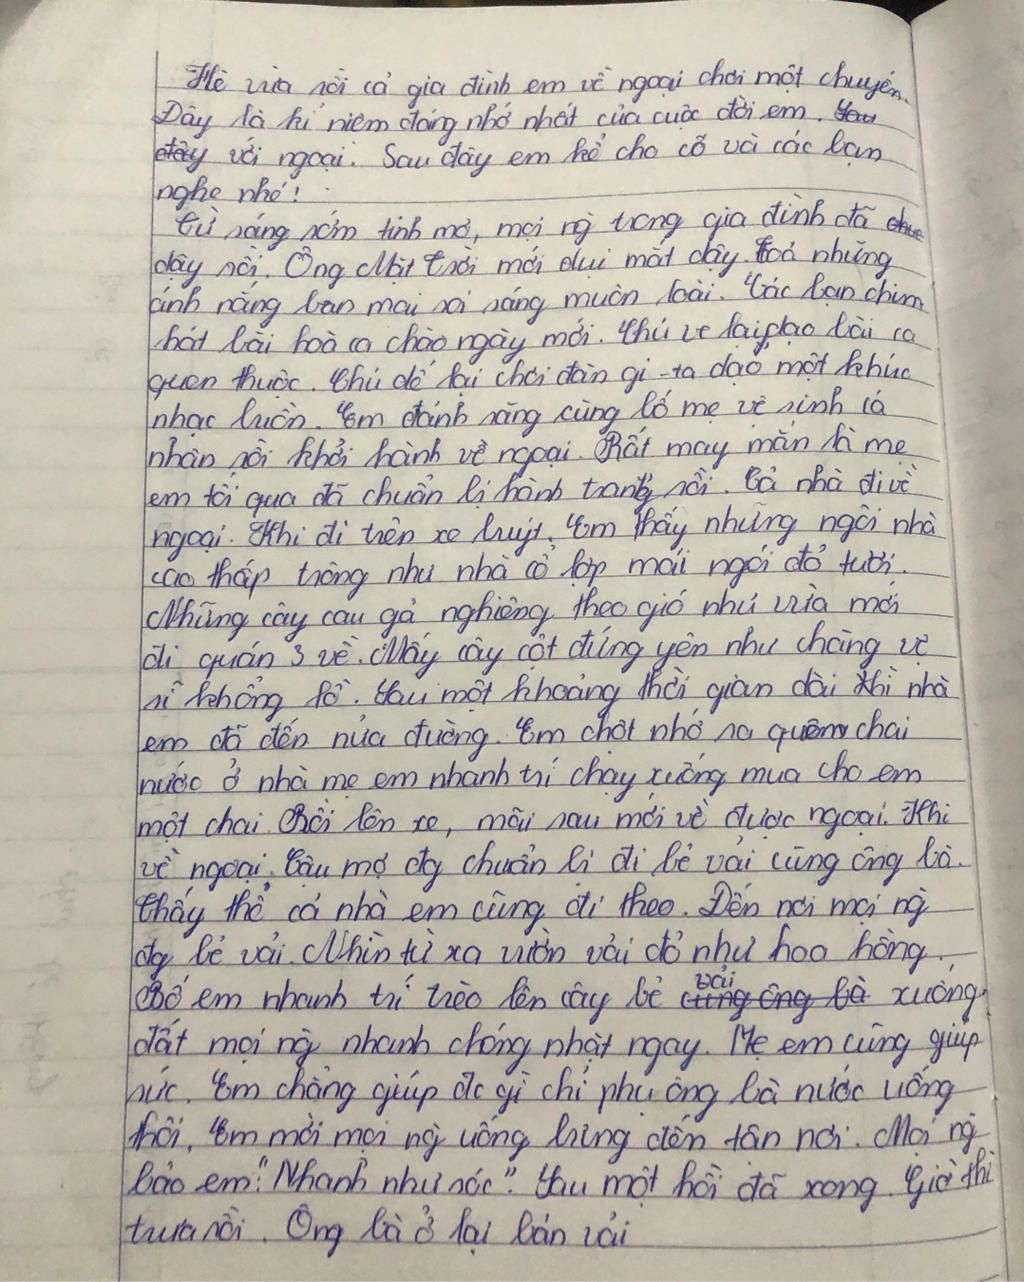 Hè vừa rồi cả gia đình em về ngoại chơi một chuyến.
Đây là kỉ niệm đáng nhớ nhất của cuộc đời em. Sau
đây với ngoại. Sau đây em kể cho cô và các bạn
nghe nhé!
Từ sáng sớm tinh mơ, mọi ng̀ trong gia đình đã
dậy rồi. Ông Mặt Trời mới dụi mắt dậy. Toả những
ánh nắng ban mai soi sáng muôn loài. Các bạn chim
hát bài hoà ca chào ngày mới. Chú ve lại dạo bài ca
quen thuộc. Chú dế lại chơi đàn gi-ta dạo một khúc
nhạc buồn. Em đánh răng cùng bố mẹ vệ sinh cá
nhân rồi khởi hành về ngoại. Rất may mắn là mẹ
em tối qua đã chuẩn bị hành trang rồi. Cả nhà đi về
ngoại. Khi đi trên xe buýt. Em thấy những ngôi nhà
cao thấp trông như nhà cổ lợp mái ngói đỏ tươi.
Những cây cau gả nghiêng theo gió như vừa mới
đi quán 3 về. Mấy cây cột đứng yên như chàng vệ
sĩ khổng lồ. Sau một khoảng thời gian dài thì nhà
em đã đến nửa đường. Em chợt nhớ ra quên chai
nước ở nhà mẹ em nhanh trí chạy xuống mua cho em
một chai. Rồi lên xe, mãi sau mới về được ngoại. Khi
về ngoại. Cậu mợ đg chuẩn bị đi bẻ vải cùng ông bà.
Thấy thể cả nhà em cũng đi theo. Đến nơi mọi ng̀
đg bẻ vải. Nhìn từ xa vườn vải đỏ như hoa hồng.
Bố em nhanh trí trèo lên cây bẻ vải cùng ông bà xuống
đất mọi ng̀ nhanh chóng nhặt ngay. Mẹ em cũng giúp
sức. Em chẳng giúp đc gì chỉ phụ ông bà nước uống
thôi, Em mời mọi ng̀ uống bưng đến tận nơi. Mọi ng̀
bảo em: "Nhanh như sóc". Sau một hồi đã xong. Giờ thì
trưa rồi. Ông bà ở lại bán vải